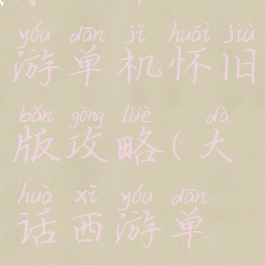 yóu dān jī huái jiù
游单机怀旧
bǎn gōng lüè dà
版攻略(大
huà xī yóu dān
话西游单